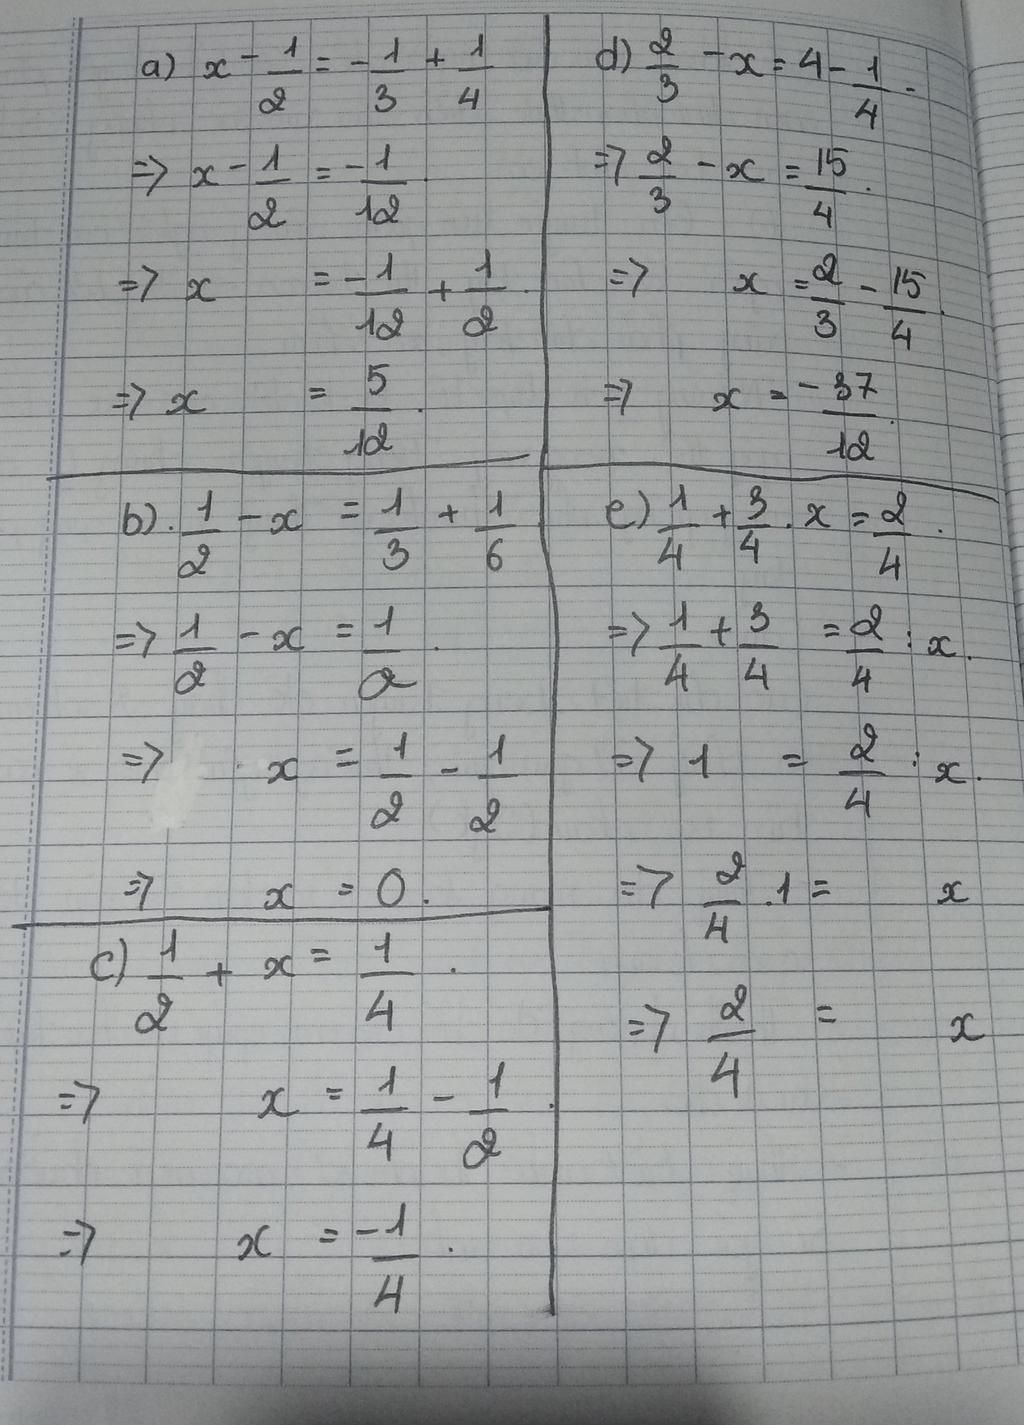 a) x - 1/2 = -1/3 + 1/4
=> x - 1/2 = -1/12.
=> x = -1/12 + 1/2.
=> x = 5/12.
b). 1/2 - x = 1/3 + 1/6
=> 1/2 - x = 1/2.
=> x = 1/2 - 1/2
=> x = 0.
c) 1/2 + x = 1/4.
=> x = 1/4 - 1/2.
=> x = -1/4.
d) 2/3 - x = 4 - 1/4.
=> 2/3 - x = 15/4.
=> x = 2/3 - 15/4.
=> x = -37/12.
e) 1/4 + 3/4 . x = 2/4.
=> 1/4 + 3/4 = 2/4 : x.
=> 1 = 2/4 : x.
=> 2/4 . 1 = x
=> 2/4 = x